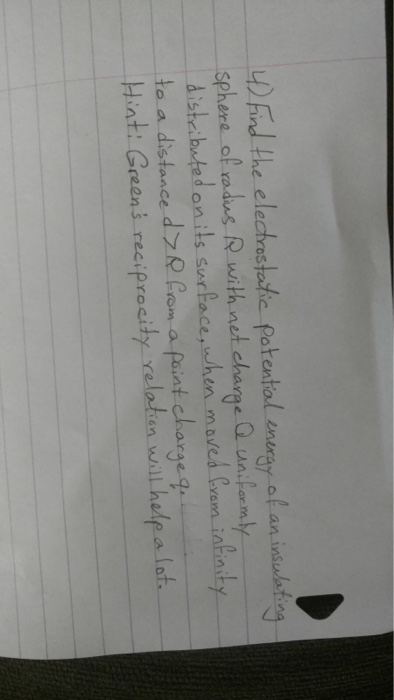 4) Find the electrostatic potential energy of an insulating
sphere of radius R with net charge Q uniformly
distributed on its surface, when moved from infinity
to a distance d > R from a point charge q.
Hint: Green's reciprocity relation will help a lot.